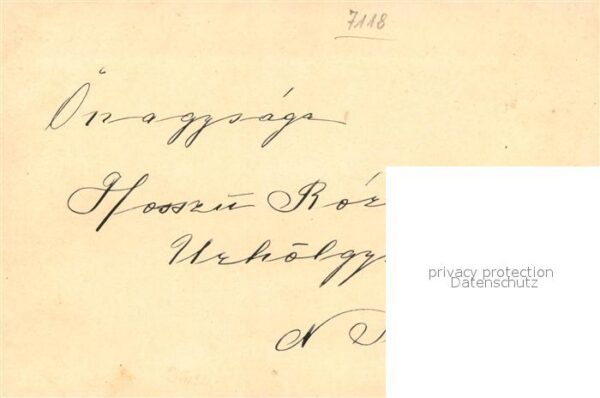 7118
Őnagysága
Hosszú Róz
Urhölgy
N
privacy protection
Datenschutz